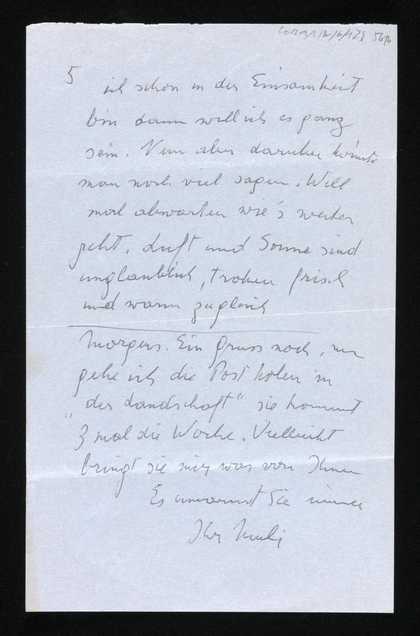 5
ich schon in der Einsamkeit
bin dann will ich es ganz
sein. Nun aber darüber könnte
man noch viel sagen. Will
mal abwarten wie's weiter
geht. Luft und Sonne sind
unglaublich, trocken frisch
und warm zugleich
Morgens. Ein Gruss noch, nun
gehe ich die Post holen in
"der Landschaft" sie kommt
3 mal die Woche. Vielleicht
bringt sie mir was von Ihnen
Es umarmt Sie immer
Ihr